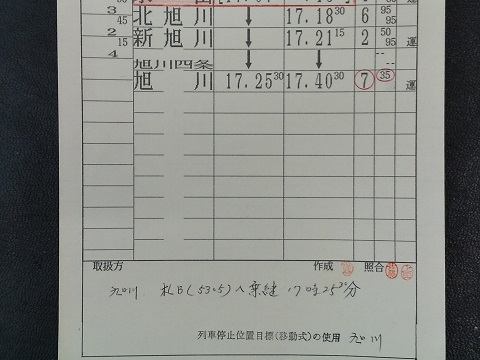 3 45 北旭川 ↓ 17.18 30 6 95 95
2 15 新旭川 ↓ 17.21 15 2 50 95 運
4 旭川四条 ↓ ↓ -- --
旭川 17.25 30 17.40 30 7 35 運
取扱方 作成 照合
札B(53.5)へ乗継 17時25 30分
列車停止位置目標(移動式)の使用